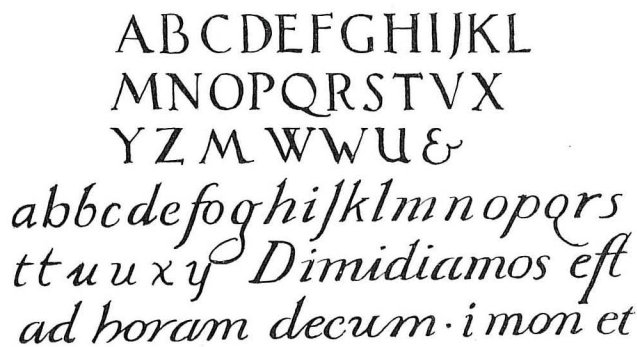 ABCDEFGHIJKL
MNOPQRSTVX
YZM WWU&
abbcdefoghijklmnopqrs
ttuuxy Dimidiamos eſt
ad horam decum · i mon et